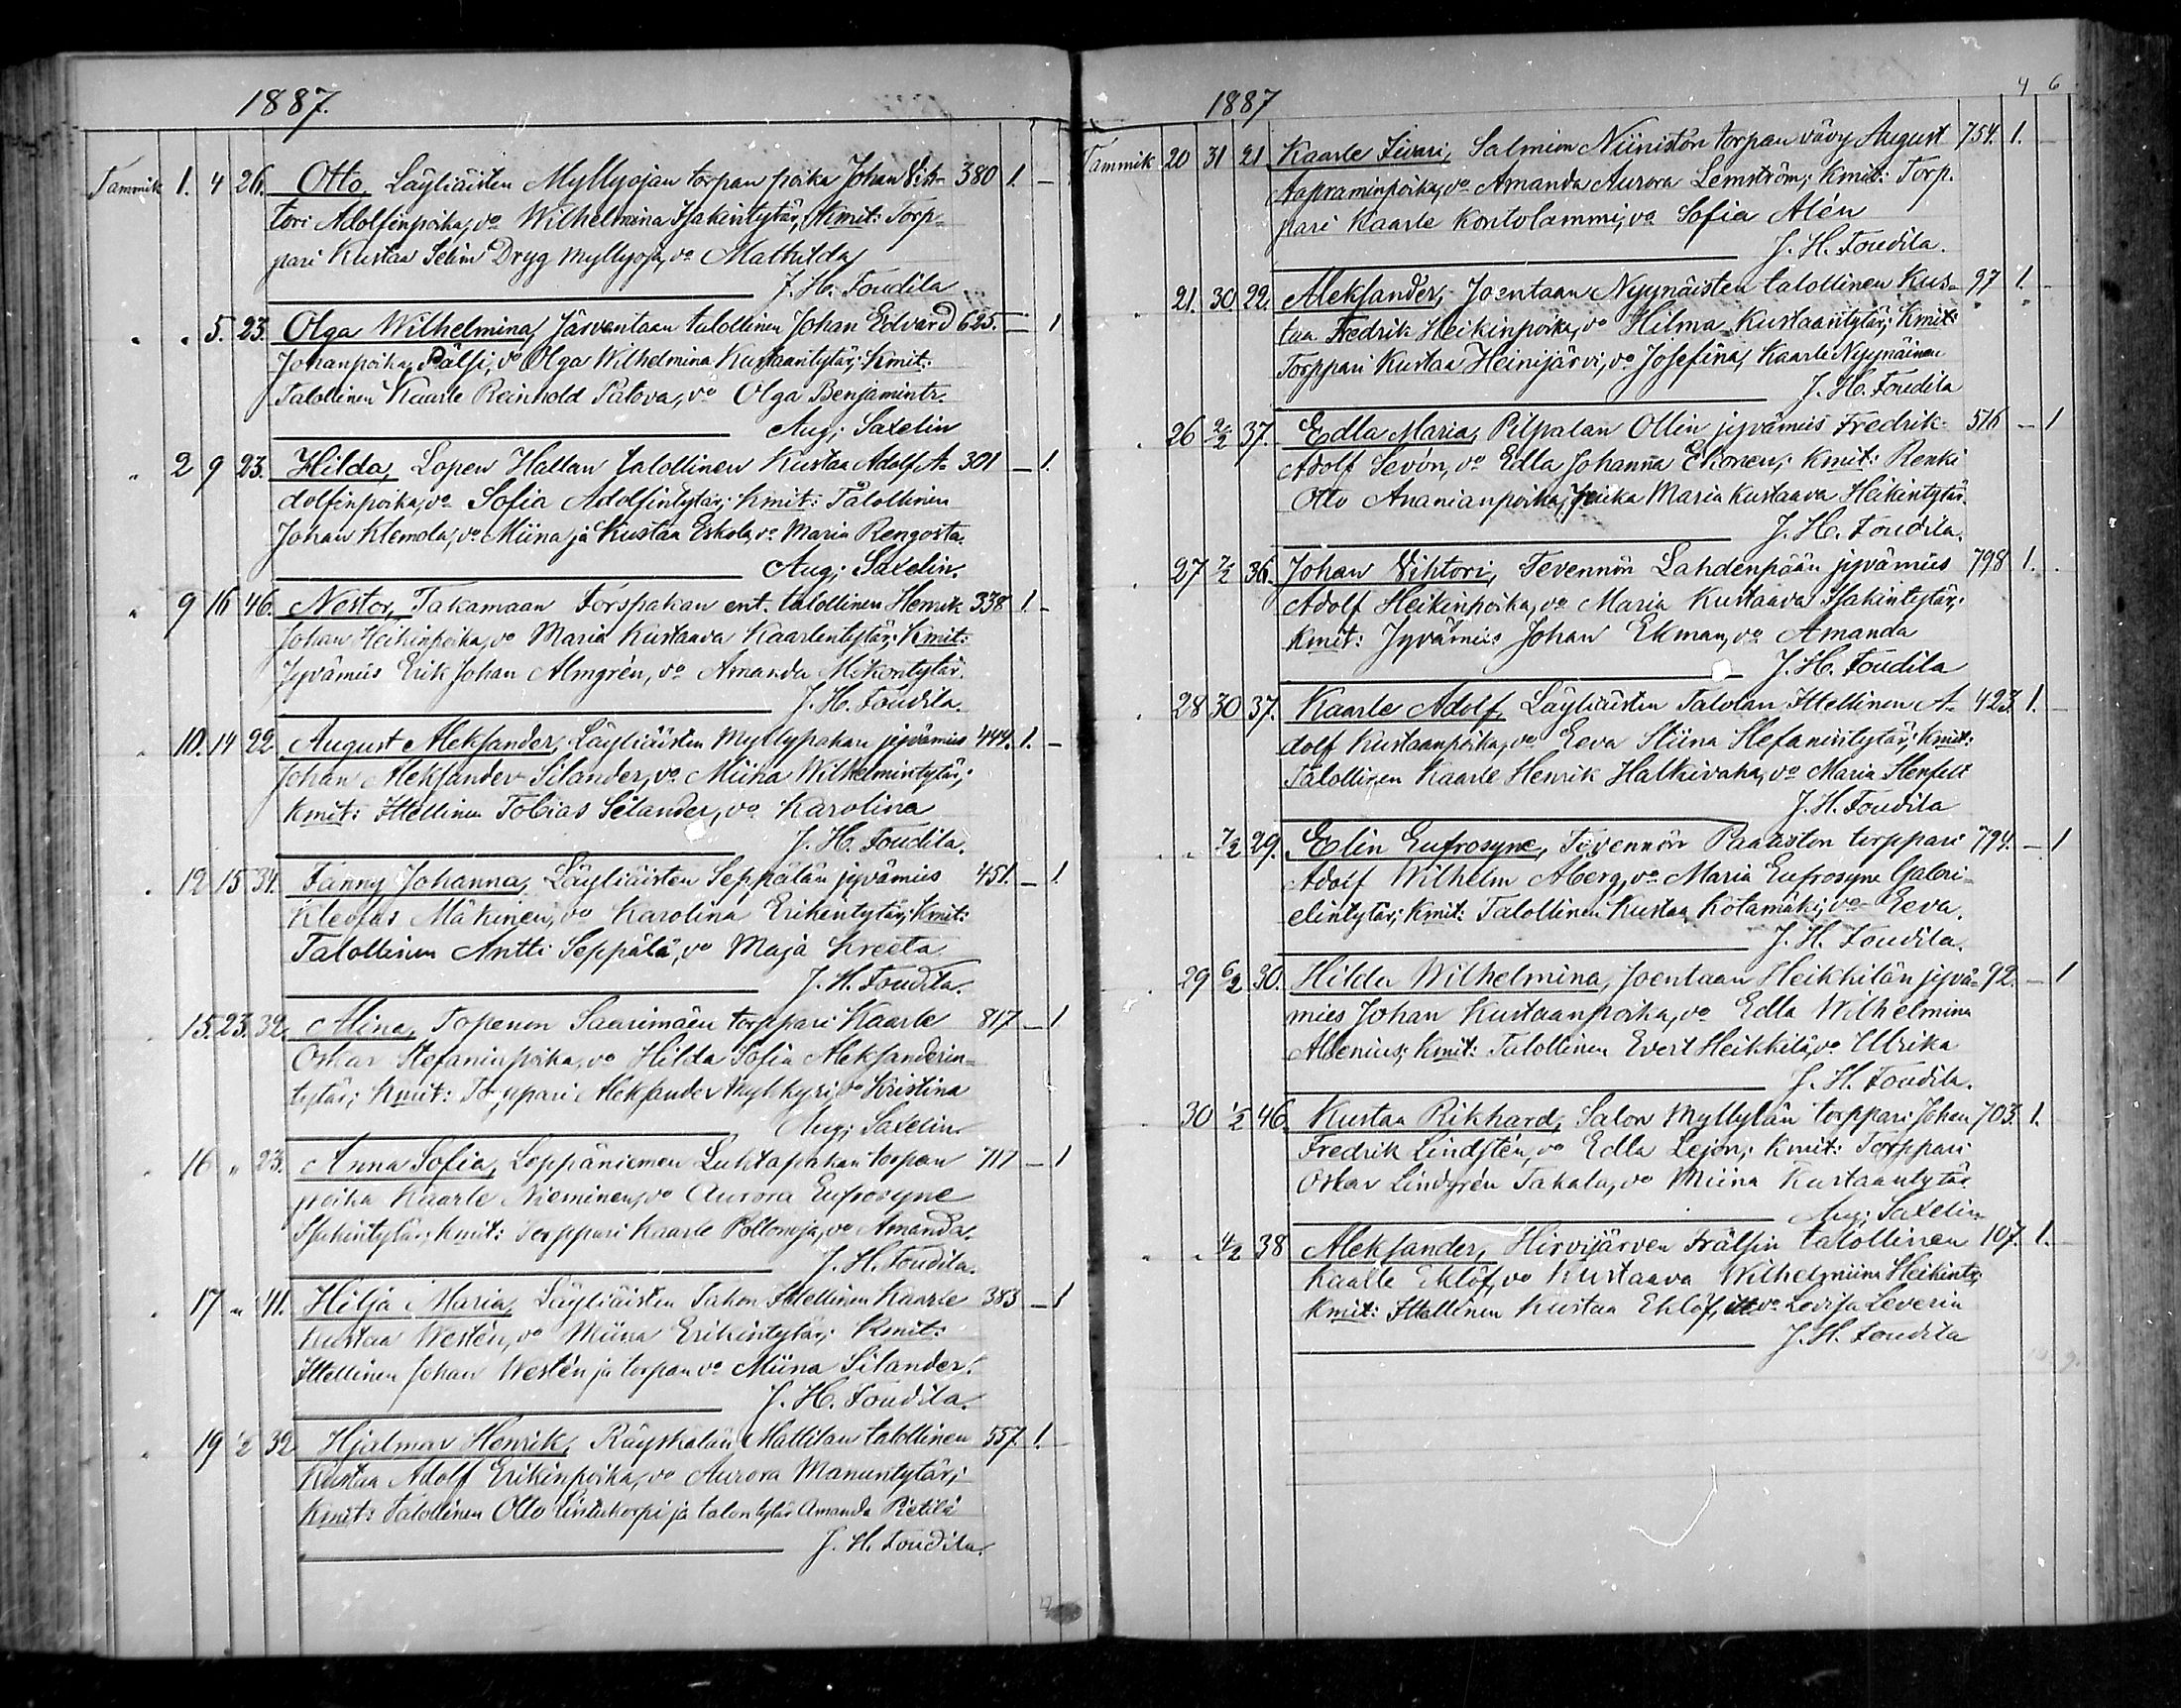 1887.
Tammik 1. 4 26. Otto, Läyliäisten Myllyojan torpan poika Johan Vih- 380 1. -
tori Adolfinpoika, vo Wilhelmina Isakintytär; Kmit: Torp-
pari Kustaa Selim Dryg Myllyoja, vo Mathilda
J. H. Toudila
" " 5. 23. Olga Wilhelmina, Järventaan talollinen Johan Edvard 625. - 1
Johanpoika Pälsi, vo Olga Wilhelmina Kustaantytär; Kmit:
Talollinen Kaarle Reinhold Palova, vo Olga Benjamintr.
Aug; Saxelin
" 2 9 23. Hilda, Lopen Hallan talollinen Kustaa Adolf A- 301 - 1.
dolfinpoika, vo Sofia Adolfintytär; Kmit: Talollinen
Johan Klemola, vo Miina ja Kustaa Eskola, vo Maria Rengosta.
Aug; Saxelin.
" 9 16 46. Nestor, Takamaan Forspakan ent. talollinen Henrik 338 1. -
Johan Heikinpoika, vo Maria Kustaava Kaarlentytär; Kmit:
Jyvämies Erik Johan Almgrén, vo Amanda Mikontytär.
J. H. Toudila.
" 10. 14 22 August Aleksander, Läyliäisten Myllypakan jyvämies 444. 1. -
Johan Aleksander Silander, vo Miina Wilhelmintytär;
Kmit: Itellinen Tobias Silander, vo Karolina
J. H. Toudila.
" 12 15 34. Fanny Johanna, Läyliäisten Seppälän jyvämies 451. - 1.
Kleofas Mäkinen, vo Karolina Erikintytär; Kmit:
Talollinen Antti Seppälä, vo Maja Kreeta
J. H. Toudila.
" 15. 23. 32. Alina, Topenon Saarimäen torppari Kaarle 817 - 1
Oskar Stefaninpoika, vo Hilda Sofia Aleksanderin-
tytär; Kmit: Torppari Aleksander Myhkyri, vo Kristina
Aug; Saxelin.
" 16 " 23. Anna Sofia, Loppäniemen Luhtapakan torpan 717 - 1
poika Kaarle Nieminen, vo Aurora Eufrosyne
Isakintytär; Kmit: Torppari Kaarle Pollonoja, vo Amanda.
J. H. Toudila.
" 17 " 41. Hilja Maria, Läyliäisten Tahon Itellinen Kaarle 383 - 1
Kustaa Westén, vo Miina Erikintytär; Kmit:
Itellinen Johan Westén ja torpan vo Miina Silander.
J. H. Toudila.
" 19 1/2 32 Hjalmar Henrik, Räyskälän Mattilan talollinen 557. 1. -
Kustaa Adolf Erikinpoika, vo Aurora Manuntytär;
Kmit: Talollinen Otto Lintukorpi ja talon tytär Amanda Pietilä
J. H. Toudila.
1887
4 6
Tammik 20 31 21 Kaarle Iivari, Salmion Niinistön torpan vävy August 754. 1. -
Aapraminpoika, vo Amanda Aurora Lemström; Kmit: Torp-
pari Kaarle Kontolammi, vo Sofia Alén
J. H. Toudila.
" 21. 30 22. Aleksander, Joentaan Nyynäisten talollinen Kus- 97 1. -
taa Fredrik Heikinpoika, vo Hilma Kustaantytär; Kmit:
Torppari Kustaa Heinijärvi, vo Josefina, Kaarle Nyynäinen
J. H. Toudila
" 26 2/2 37. Edla Maria, Pilpalan Ollin jyvämies Fredrik 516 - 1
Adolf Sevón, vo Edla Johanna Ekonen; Kmit: Renki
Otto Ananianpoika, piika Maria Kustaava Heikintytär.
J. H. Toudila.
" 27 7/2 36. Johan Vihtori, Tevennön Lahdenpään jyvämies 798 1. -
Adolf Heikinpoika, vo Maria Kustaava Isakintytär;
Kmit: Jyvämies Johan Ekman, vo Amanda
J. H. Toudila
" 28 30 37. Kaarle Adolf, Läyliäisten Talolan Itellinen A- 423. 1. -
dolf Kustaanpoika, vo Eeva Stiina Stefanintytär; Kmit:
Talollinen Kaarle Henrik Halkivaha, vo Maria Stenfelt
J. H. Toudila
" " 7/2 29. Elin Eufrosyne, Tevennön Paalaston torppari 794. - 1
Adolf Wilhelm Aberg, vo Maria Eufrosyne Gabri-
elintytär; Kmit: Talollinen Kustaa Kotamäki, vo Eeva.
J. H. Toudila.
" 29 6/2 30. Hilda Wilhelmina, Joentaan Heikkilän jyvä- 92. - 1
mies Johan Kustaanpoika, vo Edla Wilhelmina
Alenius; Kmit: Talollinen Evert Heikkilä, vo Ulrika
J. H. Toudila.
" 30 1/2 46 Kustaa Rikhard, Salon Myllylän torppari Johan 703. 1. -
Fredrik Lindstén, vo Edla Lejon; Kmit: Torppari
Oskar Lindgrén Takala, vo Miina Kustaantytär
Aug; Saxelin
" " 4/2 38 Aleksander, Hirvijärven Frälsin talollinen 107. 1. -
Kaalle Eklöf, vo Kustaava Wilhelmiina Heikintr;
Kmit: Itellinen Kustaa Eklöf, vo Lovisa Leverin
J. H. Toudila